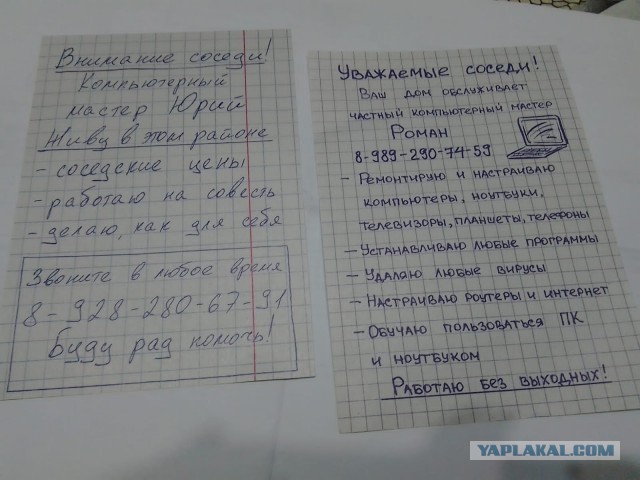 Внимание соседи!
Компьютерный
мастер Юрий
Живу в этом районе
- соседские цены
- работаю на совесть
- делаю, как для себя
Звоните в любое время
8-928-280-67-91
Буду рад помочь!
Уважаемые соседи!
Ваш дом обслуживает
частный компьютерный мастер
Роман
8-989-290-74-59
- Ремонтирую и настраиваю
компьютеры, ноутбуки,
телевизоры, планшеты, телефоны
- Устанавливаю любые программы
- Удаляю любые вирусы
- Настраиваю роутеры и интернет
- Обучаю пользоваться ПК
и ноутбуком
Работаю без выходных!
YAPLAKAL.COM